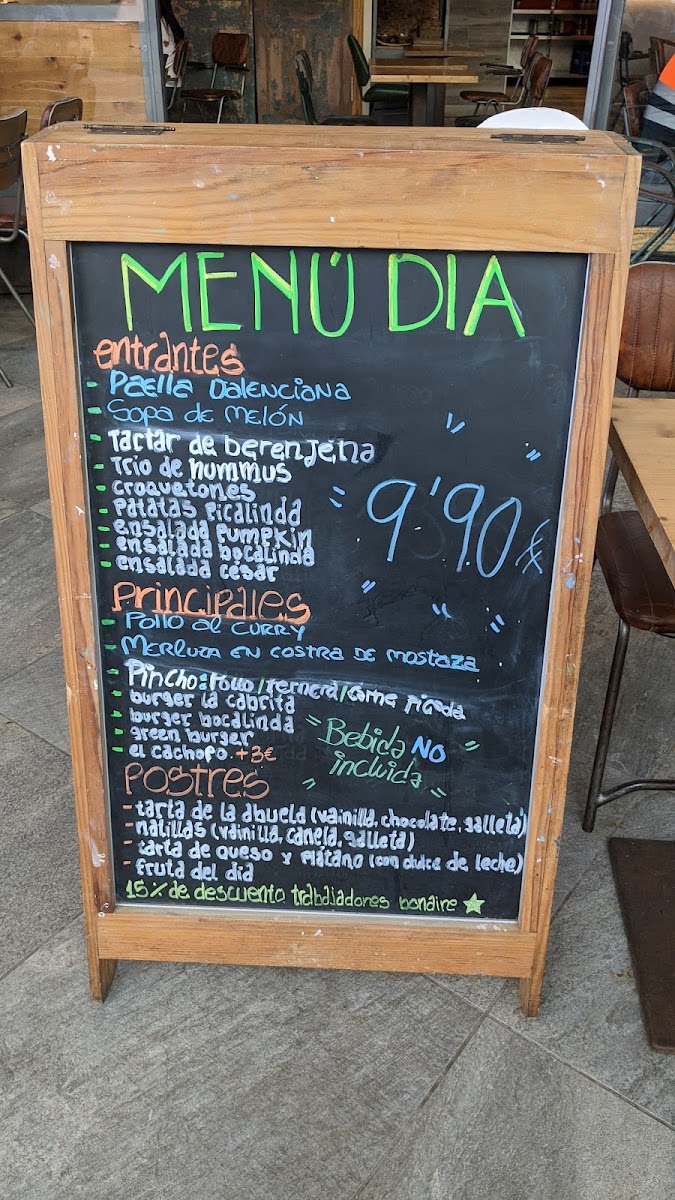 MENÚ DIA
entrantes
- Paella Valenciana
- Sopa de Melón
- Tartar de berenjena
- Trio de hummus
- croquetones
- Patatas Picalinda
- ensalada Pumpkin
- ensalada bocalinda
- ensalada césar
9'90€
Principales
- Pollo al curry
- Merluza en costra de mostaza
- Pincho: Pollo/ternera/carne picada
- burger la cabrita
- burger bocalinda
- green burger
- el cachopo +3€
Bebida NO
incluida
Postres
- tarta de la abuela (vainilla, chocolate, galleta)
- natillas (vainilla, canela, galleta)
- tarta de queso y plátano (con dulce de leche)
- fruta del día
15% de descuento trabajadores bonaire